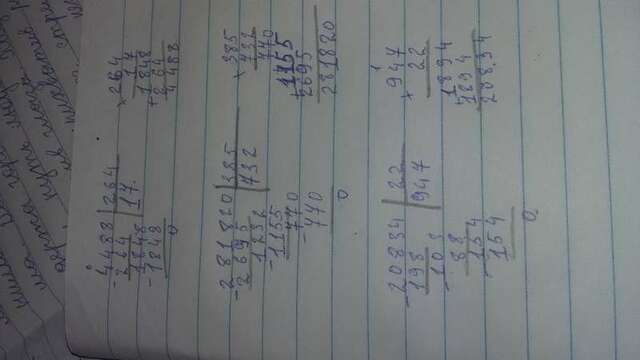 нил
ма.
держа гор
путь
ив глаза
-4488 | 264
264 | 17.
1848
-1848
0
×264
17
1848
+264
4488
-281820 | 385
2695 | 732
1232
-1155
770
-770
0
×385
732
770
+1155
2695
281820
-20834 | 22
198 | 947
-103
88
-154
154
0
1
×947
22
1894
+1894
20834